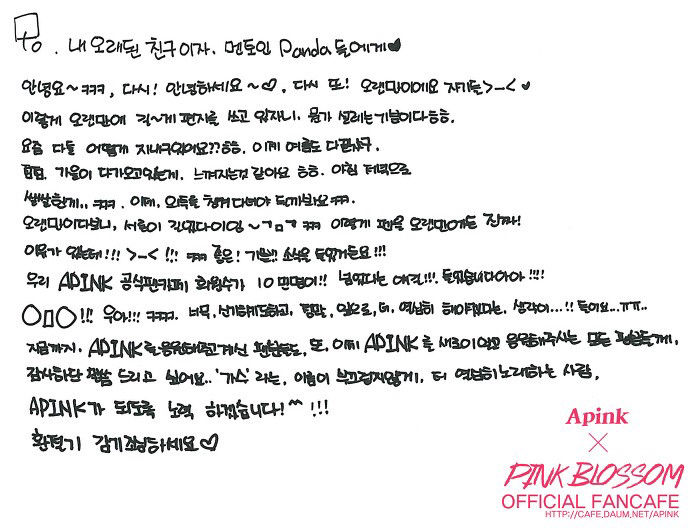 To. 내 오래된 친구이자. 멘토인 Panda들에게♥
안녕요~ㅋㅋㅋ, 다시! 안녕하세요~♡. 다시 또! 오랜만이에요 자기들>_<♥
이렇게 오랜만에 길~게 편지를 쓰고 있자니. 뭔가 설레는기분이다ㅎㅎ.
요즘 다들 어떻게 지내구있어요??ㅎㅎ. 이제 여름도 다갔구.
흠흠. 가을이 다가오고있는게. 느껴지는것 같아요 ㅎㅎ. 아침 저녁으로
쌀쌀한게.. ㅋㅋ. 이제. 외투를 챙겨다녀야 되는가봐요ㅋㅋ.
오랜만이다보니, 서론이 길었다이잉~ㄱㅁㄱ ㅋㅋ 이렇게 펜을 오랜만에든 진짜!
이유가 있는데!!! >_< !!! ㅋㅋ 좋은! 기쁜!! 소식을 들었거든요!!!
우리 APINK 공식팬카페 회원수가 10만명이!! 넘었다는 얘길!!!. 들었습니다아아!!!!
○□○!!! 우아!!! ㅋㅋㅋ. 너무, 신기하기도하고, 정말, 앞으로, 더, 열심히 해야겠다는, 생각이...!! 들어요...ㅠㅠ..
지금까지. APINK를응원해주고계신 팬분들도, 또, 이제 APINK를 새로이알고 응원해주시는 모든 팬분들께,
감사하단 말씀 드리고 싶어요.. '가수' 라는, 이름이 부끄럽지않게, 더 열심히노래하는 사람,
APINK가 되도록 노력 하겠습니다!^^ !!!
환절기 감기조심하세요♡
Apink
×
PINK BLOSSOM
OFFICIAL FANCAFE
HTTP://CAFE.DAUM.NET/APINK